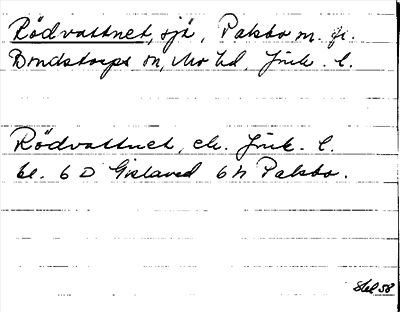 Rödvattnet, sjö, Paksbo m. fl.
Bondstorps sn, Mo hd, Jönk. l.
Rödvattnet, ek. Jönk. l.
bl. 6 D Gislaved 6 h Paksbo.
Skd 58